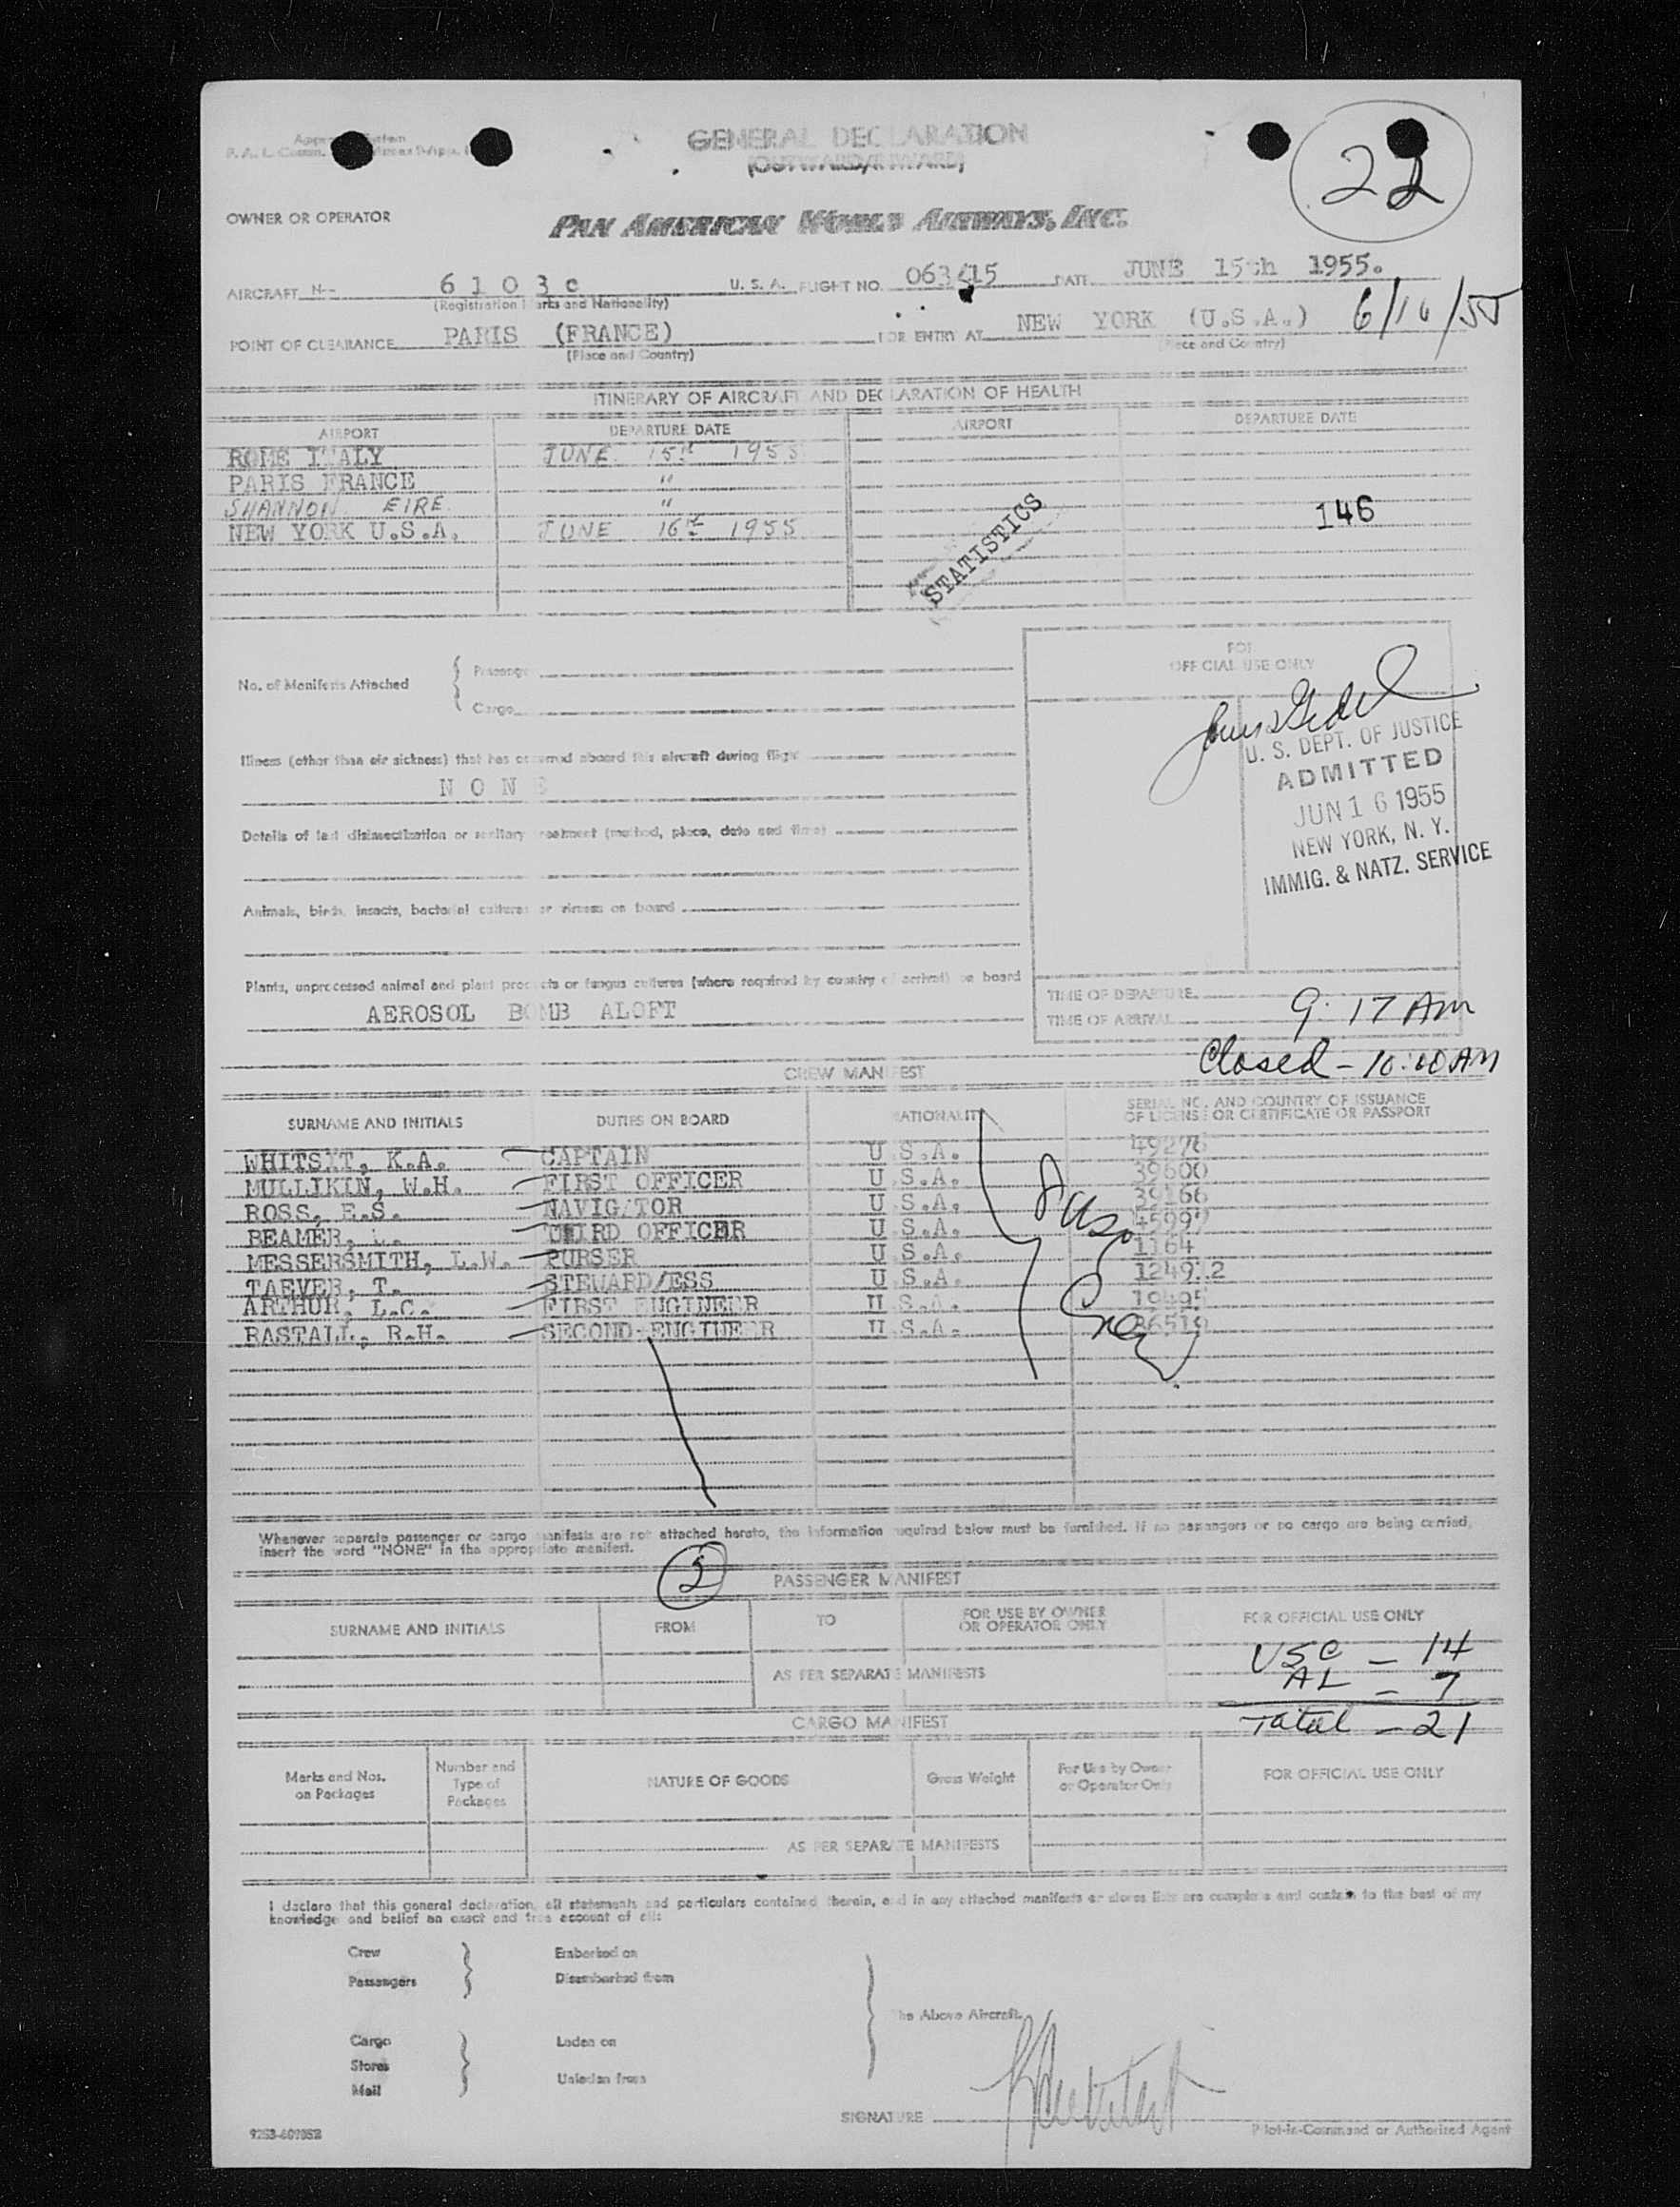 GENERAL DECLARATION
(OUTWARD/INWARD)
22
OWNER OR OPERATOR
PAN AMERICAN WORLD AIRWAYS, INC.
AIRCRAFT N-- 6103c U. S. A. FLIGHT NO. 063/15 DATE JUNE 15th 1955.
(Registration Marks and Nationality)
POINT OF CLEARANCE PARIS (FRANCE) FOR ENTRY AT NEW YORK (U.S.A.) 6/16/55
(Place and Country) (Place and Country)
ITINERARY OF AIRCRAFT AND DECLARATION OF HEALTH
AIRPORT DEPARTURE DATE AIRPORT DEPARTURE DATE
ROME ITALY JUNE 15th 1955
PARIS FRANCE "
SHANNON EIRE "
NEW YORK U.S.A. JUNE 16th 1955
146
STATISTICS
FOR
OFFICIAL USE ONLY
No. of Manifests Attached
Passenger
Cargo
U. S. DEPT. OF JUSTICE
ADMITTED
JUN 16 1955
NEW YORK, N. Y.
IMMIG. & NATZ. SERVICE
Illness (other than air sickness) that has occurred aboard this aircraft during flight
NONE
Details of last disinsectization or sanitary treatment (method, place, date and time)
Animals, birds, insects, bacterial cultures or viruses on board
Plants, unprocessed animal and plant products or fungus cultures (where required by country of arrival) on board
AEROSOL BOMB ALOFT
TIME OF DEPARTURE
TIME OF ARRIVAL 9:17 AM
Closed - 10:00 AM
CREW MANIFEST
SURNAME AND INITIALS DUTIES ON BOARD NATIONALITY SERIAL NO. AND COUNTRY OF ISSUANCE
OF LICENSE OR CERTIFICATE OR PASSPORT
WHITSIT, K.A. CAPTAIN U.S.A. 49276
MULLIKIN, W.H. FIRST OFFICER U.S.A. 39600
ROSS, E.S. NAVIGATOR U.S.A. 39166
BEAMER, THIRD OFFICER U.S.A.
MESSERSMITH, L.W. PURSER U.S.A. 1164
TAEVER, T. STEWARD/ESS U.S.A.
ARTHUR, L.C. FIRST ENGINEER U.S.A.
RASTALL, R.H. SECOND ENGINEER U.S.A. 36519
Whenever separate passenger or cargo manifests are not attached hereto, the information required below must be furnished. If no passengers or no cargo are being carried,
insert the word "NONE" in the appropriate manifest.
PASSENGER MANIFEST
SURNAME AND INITIALS FROM TO FOR USE BY OWNER OR OPERATOR ONLY FOR OFFICIAL USE ONLY
USC - 14
AS PER SEPARATE MANIFESTS
AL - 7
Total - 21
CARGO MANIFEST
Marks and Nos. on Packages Number and Type of Packages NATURE OF GOODS Gross Weight For Use by Owner or Operator Only FOR OFFICIAL USE ONLY
AS PER SEPARATE MANIFESTS
I declare that this general declaration, all statements and particulars contained therein, and in any attached manifests or stores lists are complete and contain to the best of my
knowledge and belief an exact and true account of all:
Crew Embarked on
Passengers Disembarked from
The Above Aircraft.
Cargo Laden on
Stores
Mail Unladen from
SIGNATURE
Pilot-in-Command or Authorized Agent